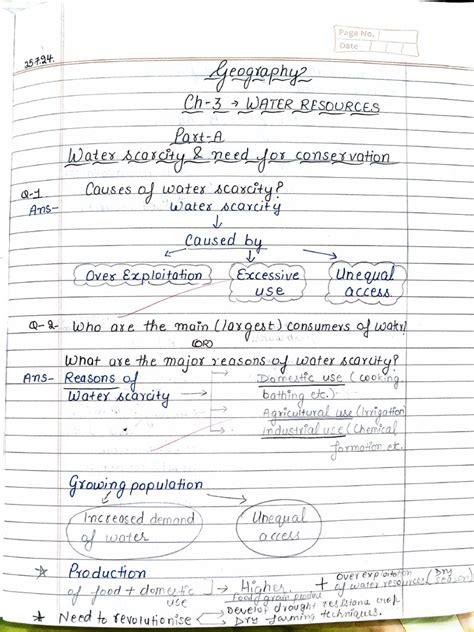 Page No.
Date
25.7.24.
Geography
Ch-3 → WATER RESOURCES
Part-A
Water scarcity & need for conservation
Q-1 Causes of water scarcity?
Ans- Water scarcity
↓
Caused by
Over Exploitation Excessive use Unequal access
Q-2 Who are the main (largest) consumers of water
(OR)
What are the major reasons of water scarcity?
Ans- Reasons of Water scarcity → Domestic use (cooking,
bathing etc.)
→ Agricultural use (Irrigation
→ Industrial use (Chemical
formation etc.
Growing population
Increased demand of water Unequal access
* Production of food + domestic use → Higher food grain + over exploitation of water resources (Dry season)
* Need to revolutionise → Develop drought resistant crop
→ Dry farming techniques.